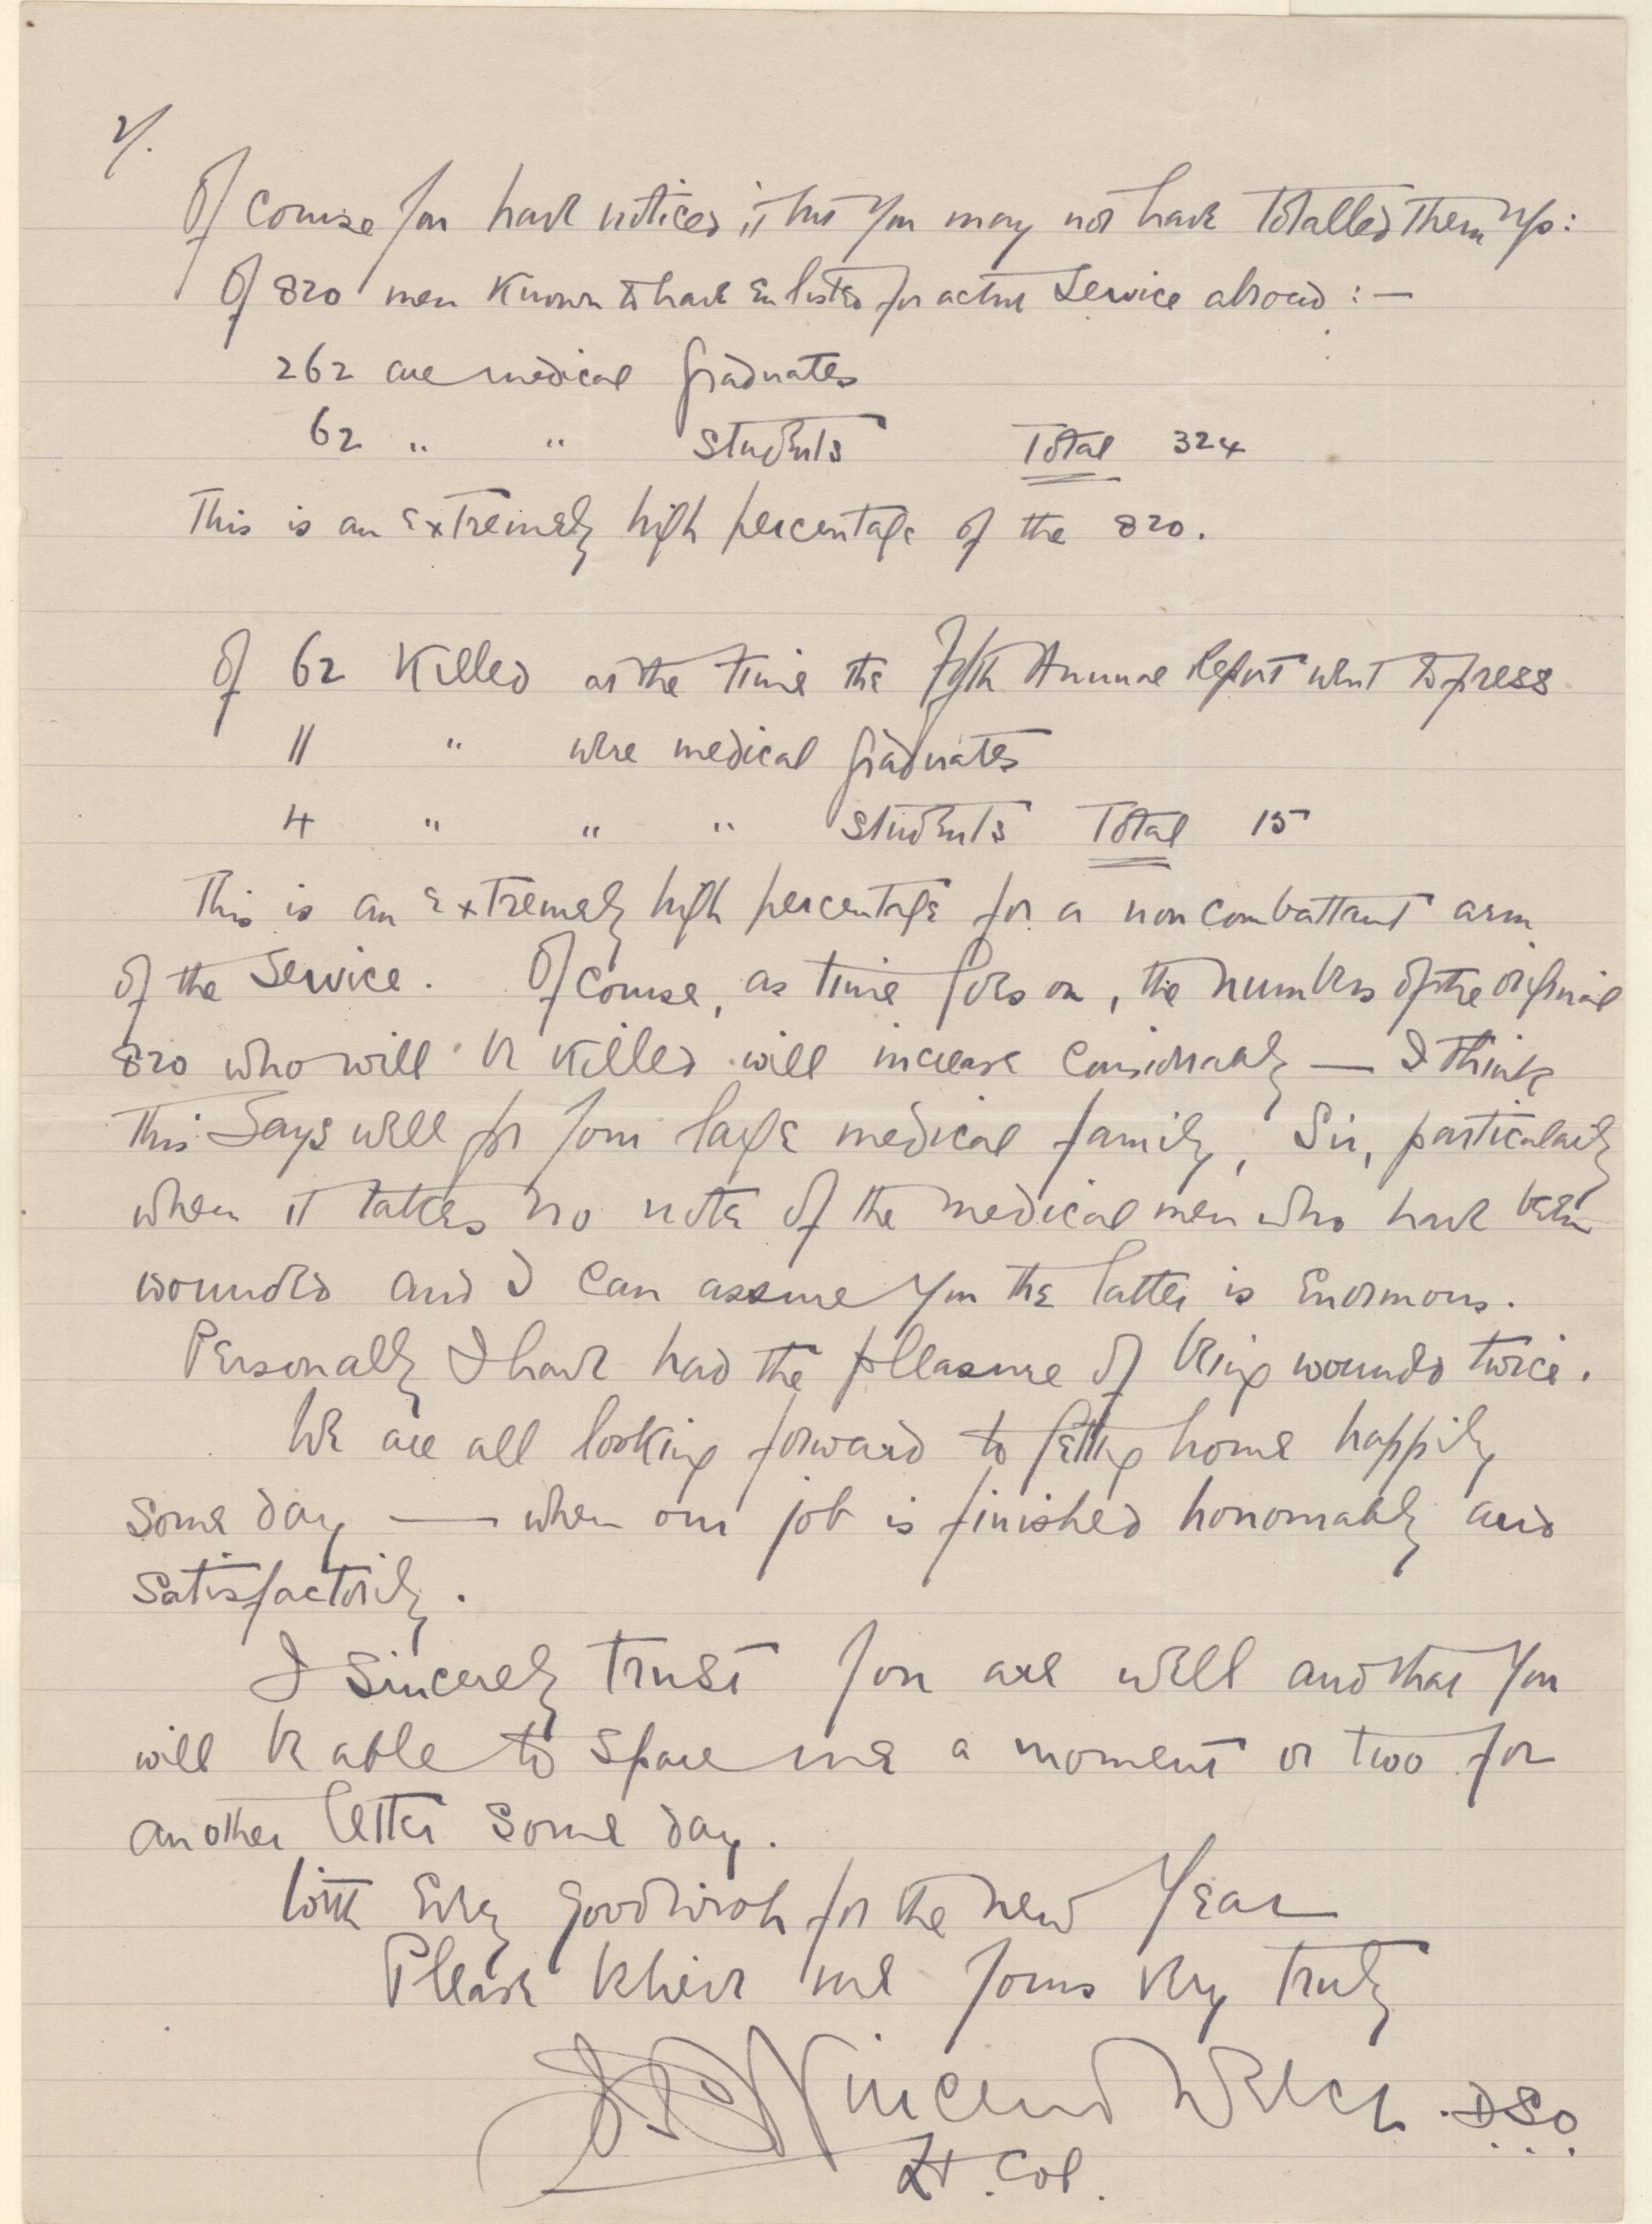 2/.
Of course you have noticed it but you may not have totalled them up:
Of 820 men known to have enlisted for active service abroad :—
262 are medical graduates
62 " " students Total 324
This is an extremely high percentage of the 820.
Of 62 killed at the time the Fifth Annual Report went to press
11 " were medical graduates
4 " " " students Total 15
This is an extremely high percentage for a non combattant arm
of the Service. Of course, as time goes on, the numbers of the original
820 who will be killed will increase considerably — I think
this says well for your large medical family, Sir, particularly
when it takes no note of the medical men who have been
wounded and I can assure you the latter is enormous.
Personally I have had the pleasure of being wounded twice.
We are all looking forward to getting home happily
some day — when our job is finished honourably and
satisfactorily.
I sincerely trust you are well and that you
will be able to spare me a moment or two for
another letter some day.
With every good wish for the new Year
Please believe me yours very truly
Vincent Welch. DSO
Lt. Col.